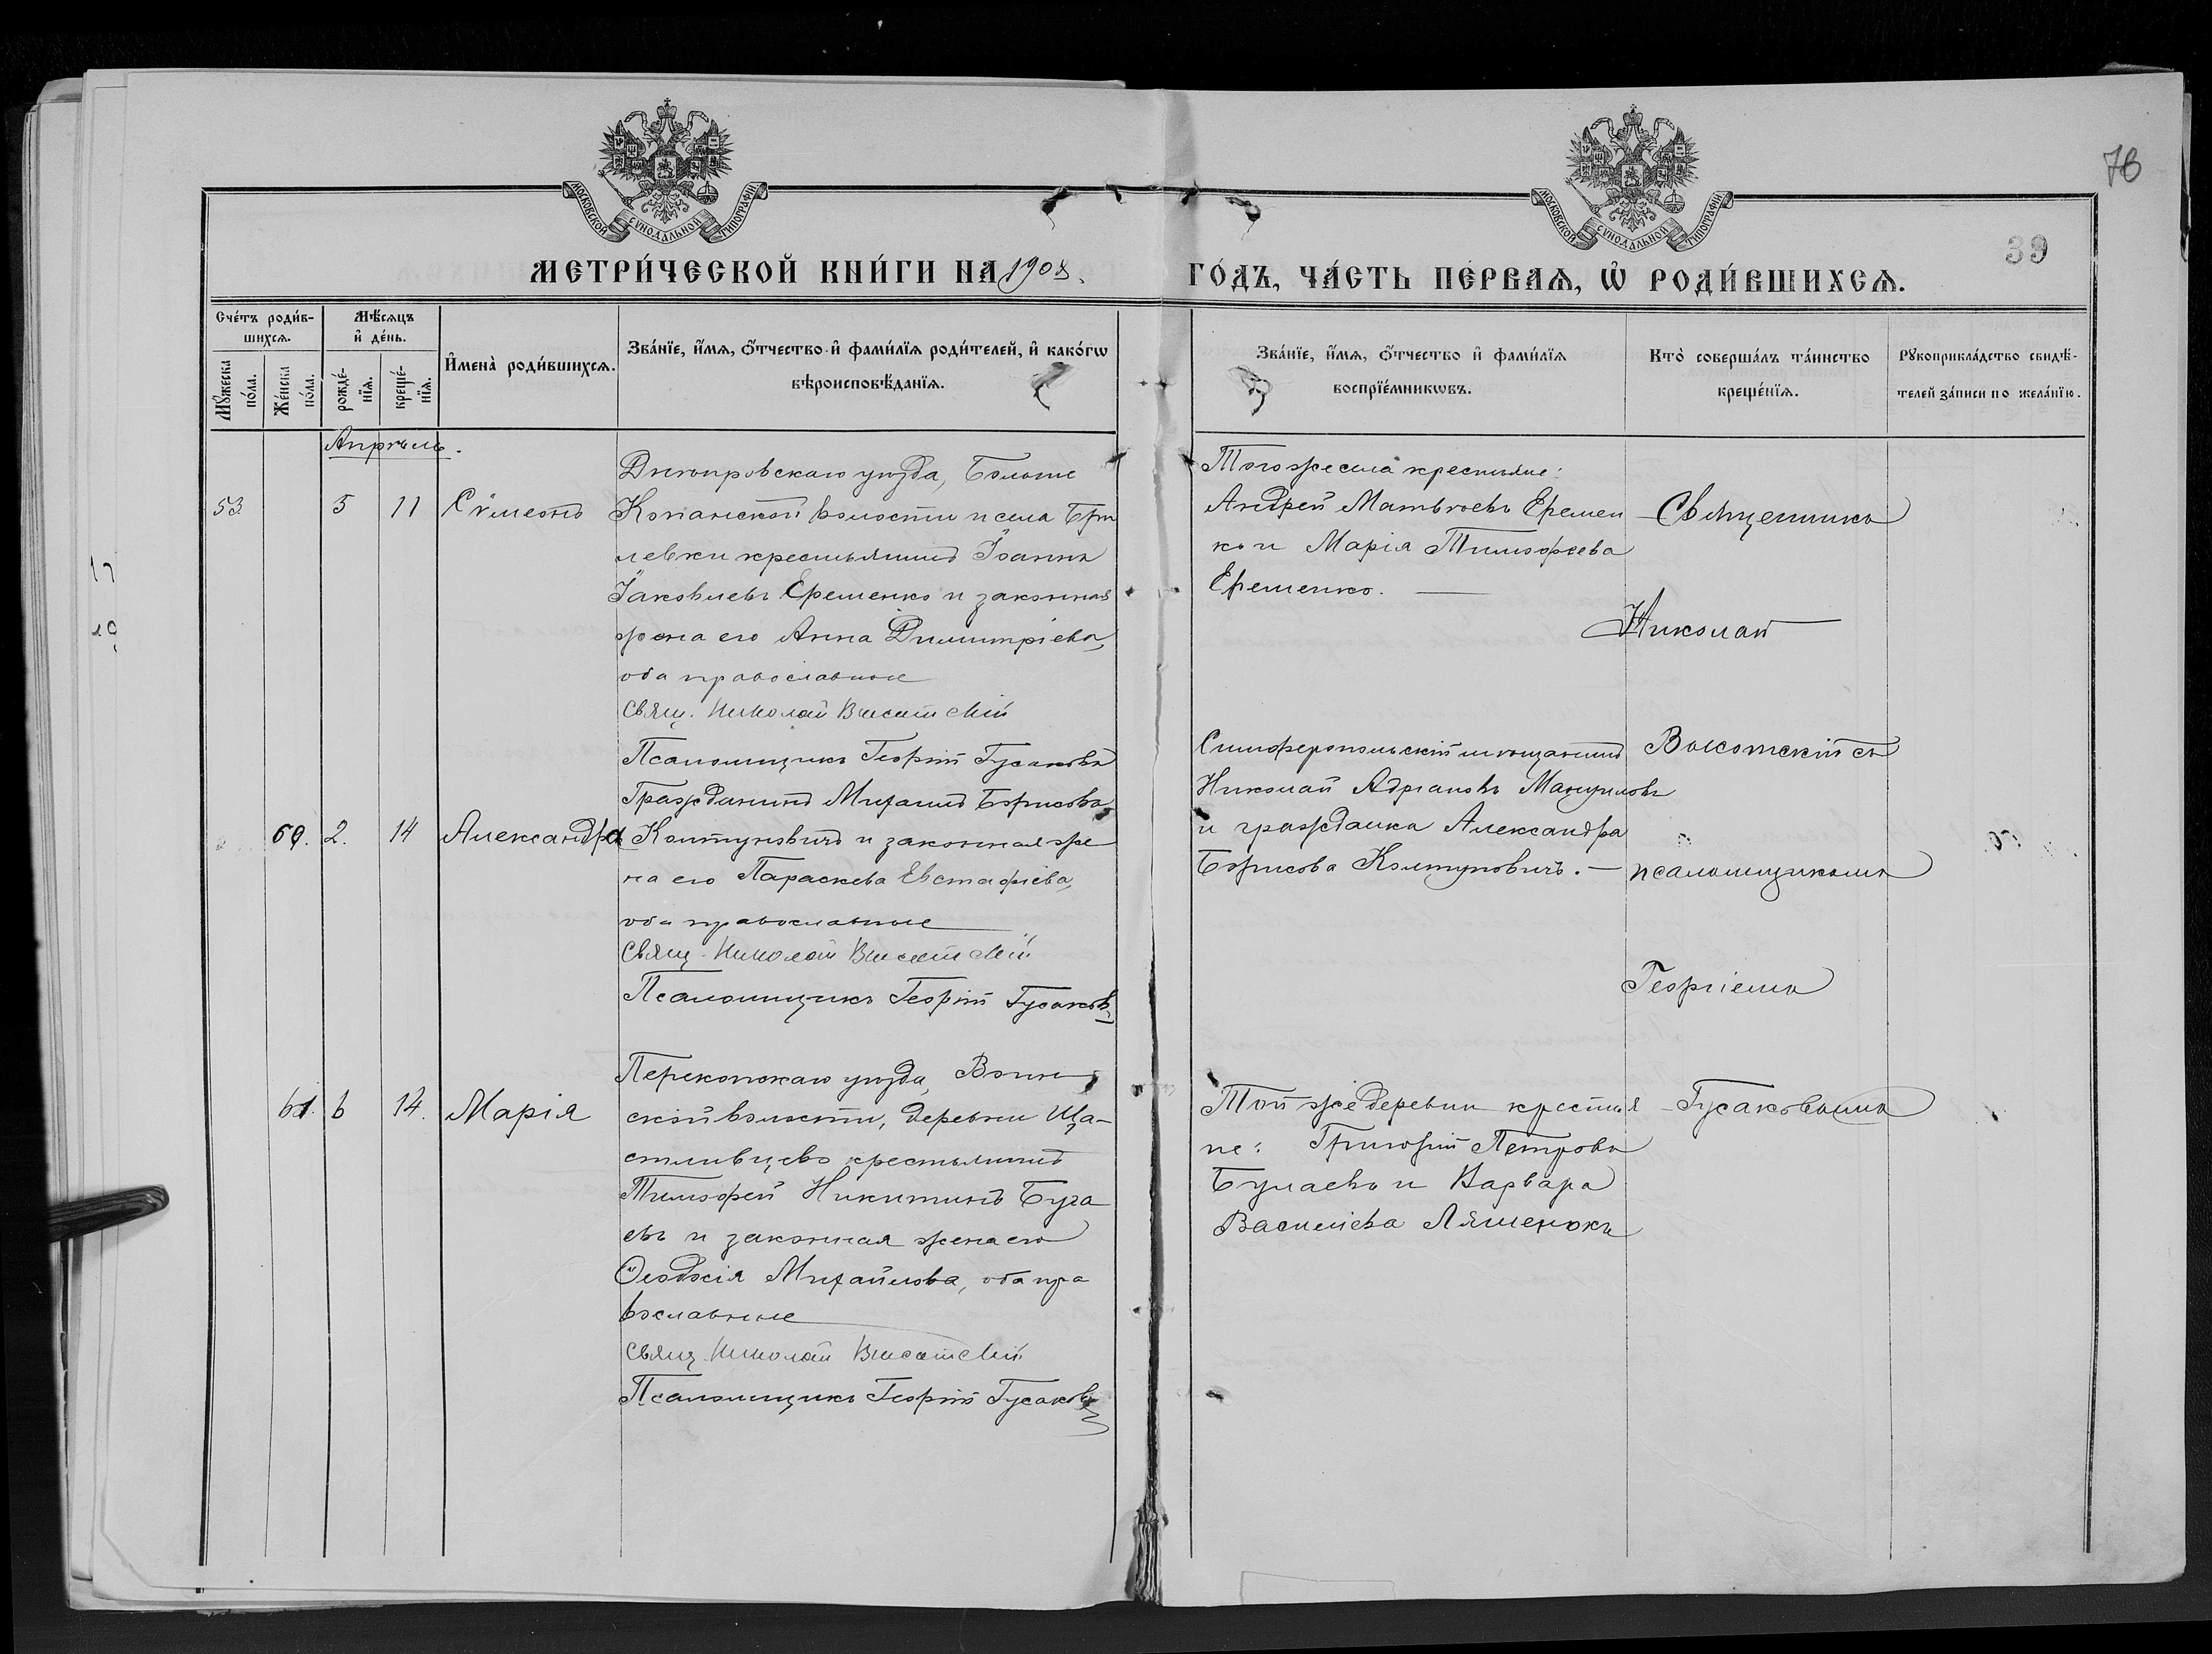 МОСКОВСКОЙ СѴНОДАЛЬНОЙ ТИПОГРАФІИ
МОСКОВСКОЙ СѴНОДАЛЬНОЙ ТИПОГРАФІИ
78
39
МЕТРИ́ЧЕСКОЙ КНИ́ГИ НА 1908.
ГО́ДЪ, ЧА́СТЬ ПЕ́РВАѦ, Ѡ҆ РОДИ́ВШИХСѦ.
Сче́тъ роди́в-
шихсѧ.
Мꙋ́жеска
по́ла.
Же́нска
по́ла.
Мѣ́сѧцъ
и҆ де́нь.
рожде́-
нїѧ.
креще́-
нїѧ.
И҆мена̀ роди́вшихсѧ.
Зва́нїе, и҆́мѧ, ѻ҆́тчество и҆ фами́лїѧ роди́телей, и҆ како́гѡ
вѣроисповѣ́данїѧ.
Зва́нїе, и҆́мѧ, ѻ҆́тчество и҆ фами́лїѧ
воспрїе́мникѡвъ.
Кто̀ соверша́лъ та́инство
креще́нїѧ.
Рꙋкоприкла́дство свидѣ́-
телей за́писи по жела́нїю.
Апрѣль.
53
5
11
Сѵмеонъ
Днѣпровскаго уѣзда, Больше
Копанской волости и села Бри
левки крестьянинъ Іоаннъ
Іаковлевъ Еременко и законная
жена его Анна Димитріева,
оба православные
Свящ. Николай Высотскій
Псаломщикъ Георгій Гусаковъ
Тогоже села крестьяне:
Андрей Матвѣевъ Еремен
ко и Марія Тимофеева
Еременко.
Священникъ
Николай
Высотскій съ
псаломщикомъ
Георгіемъ
Гусаковымъ
60.
2.
14
Александра
Гражданинъ Михаилъ Борисовъ
Колтуновичъ и законная же
на его Параскева Евстафіева,
оба православные
Свящ. Николай Высотскій
Псаломщикъ Георгій Гусаковъ
Симферопольскій мѣщанинъ
Николай Адріановъ Мануиловъ
и гражданка Александра
Борисова Колтуновичъ. —
61.
6
14.
Марія
Перекопскаго уѣзда, Воин
ской волости, деревни Ща-
стливцево крестьянинъ
Тимофей Никитинъ Буга
евъ и законная жена его
Ѳеодосія Михайлова, оба пра
вославные
Свящ. Николай Высотскій
Псаломщикъ Георгій Гусаковъ
Той же деревни крестья
не: Григорій Петровъ
Булаевъ и Варвара
Василіева Ляшенокъ